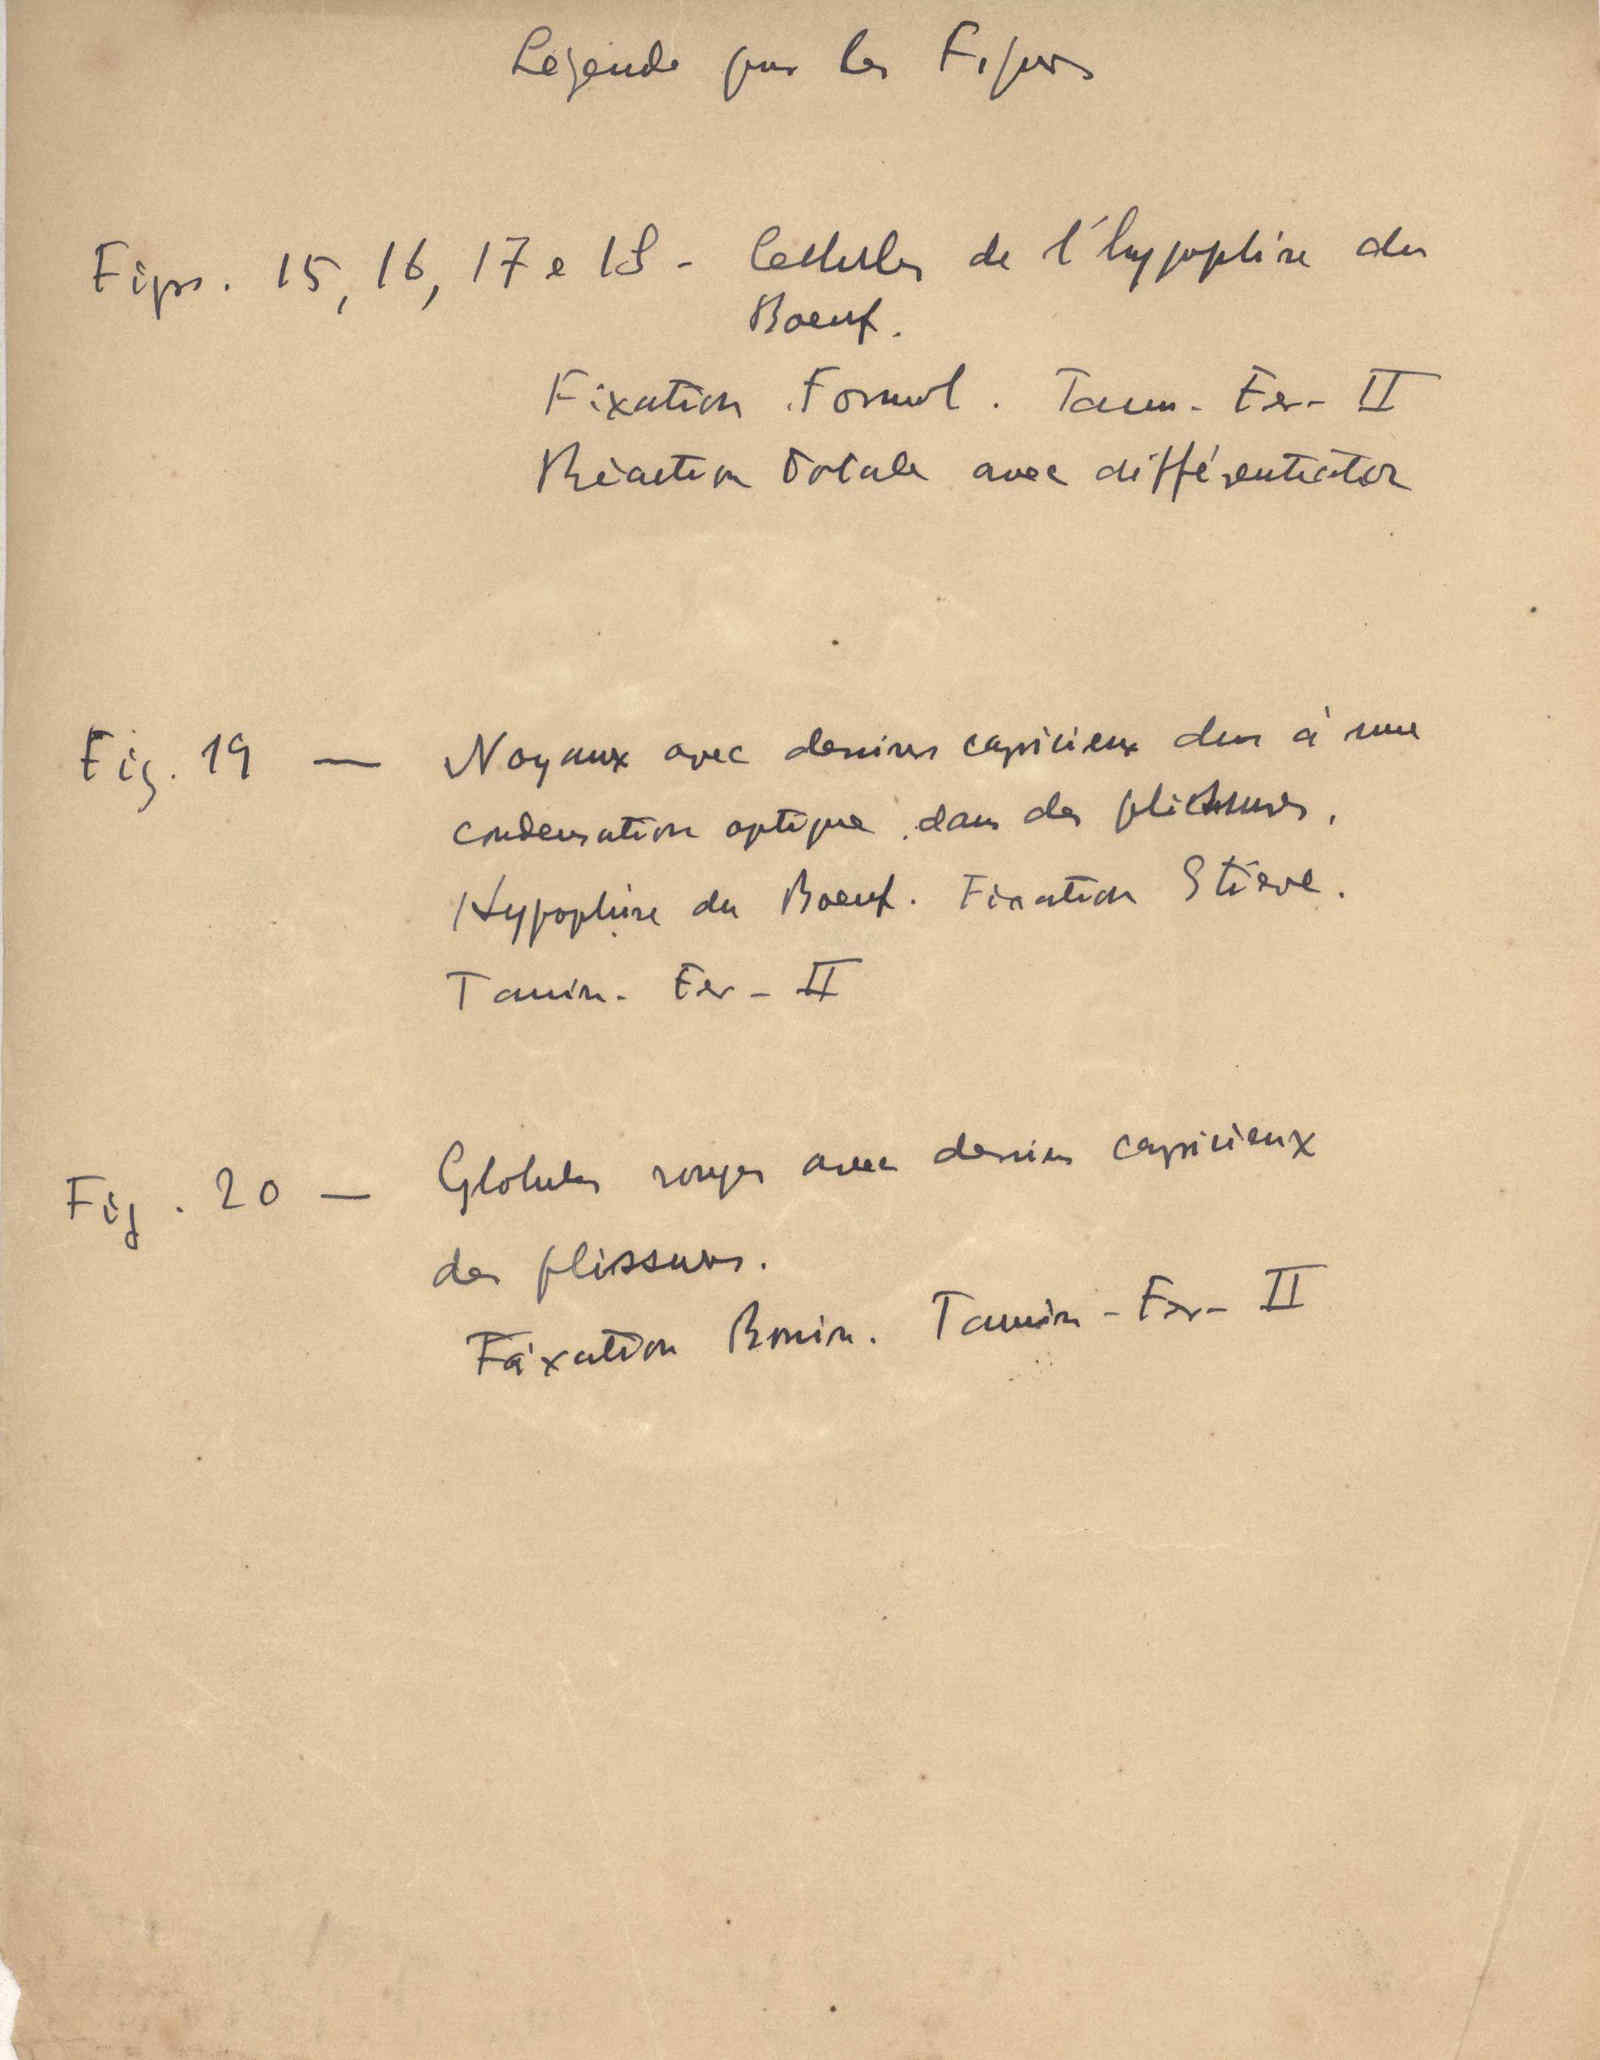 Légende pour les Figures
Figs. 15, 16, 17 e 18 - Cellules de l'hypophise du
Boeuf.
Fixation Formol. Tanin - Fer - II
Réaction totale avec différentiation
Fig. 19 — Noyaux avec dessins capricieux dus à une
condensation optique dans des plissures.
Hypophise du Boeuf. Fixation Stieve.
Tanin - Fer - II
Fig. 20 — Globules rouges avec dessins capricieux
des plissures.
Fixation Bouin. Tannin - Fer - II